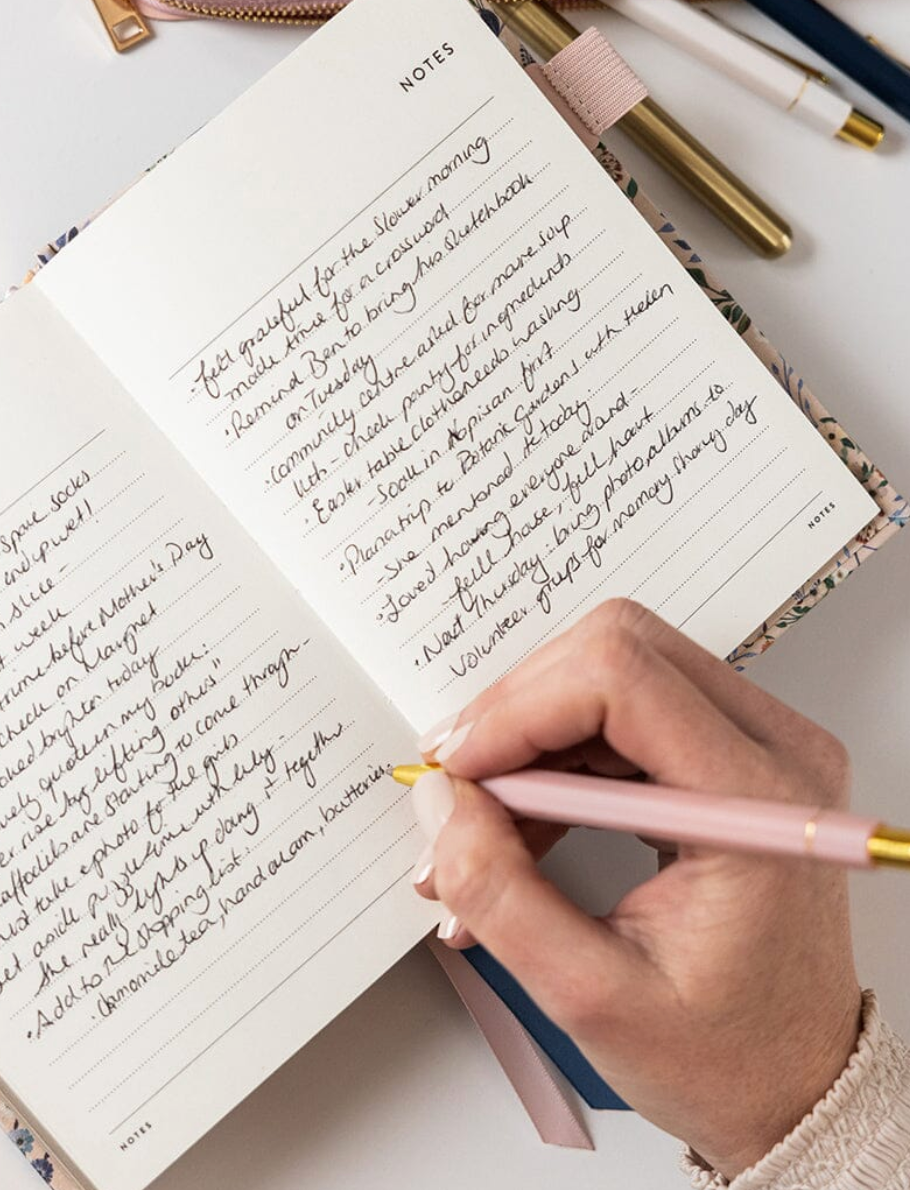 Spare socks
end up wet!
slice -
week
time before Mother's Day
check on Margret
looked brighter today
lovely quote in my book:
rise by lifting others"
daffodils are starting to come through -
must take a photo for the girls
set aside puzzle time with Lily -
She really lights up doing it together
• Add to the shopping list:
• Camomile tea, hand cream, batteries.
NOTES
NOTES
• felt grateful for the slower morning
made time for a crossword
• Remind Ben to bring his sketchbook
on Tuesday
• Community centre asked for more soup
lets - check pantry for ingredients
• Easter table clothe needs washing
- Soak in Napisan first
• Plan a trip to Botanic Gardens with Helen
- She mentioned it today.
• Loved having everyone around -
- full house, full heart
• Next Thursday: bring photo albums to
volunteer group for memory sharing day
NOTES